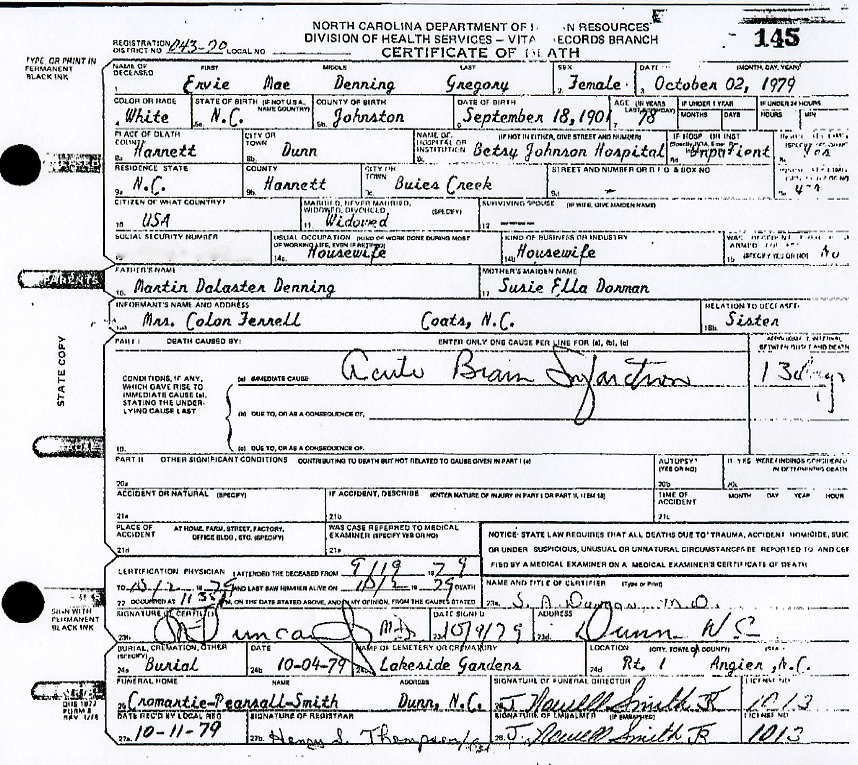 NORTH CAROLINA DEPARTMENT OF RESOURCES
DIVISION OF HEALTH SERVICES – RECORDS BRANCH
CERTIFICATE OF DEATH
145
REGISTRATION DISTRICT NO. 043-20 LOCAL NO.
TYPE OR PRINT IN PERMANENT BLACK INK
NAME OF DECEASED FIRST MIDDLE LAST SEX DATE (MONTH, DAY, YEAR)
1 Ervie Mae Denning Gregory 2 Female 3 October 02, 1979
COLOR OR RACE STATE OF BIRTH (IF NOT U.S.A., NAME COUNTRY) COUNTY OF BIRTH DATE OF BIRTH AGE (IN YEARS LAST BIRTHDAY) IF UNDER 1 YEAR IF UNDER 24 HOURS
MONTHS DAYS HOURS MIN
4 White 5a N.C. 5b Johnston 6 September 18, 1901 7 78
PLACE OF DEATH COUNTY CITY OR TOWN NAME OF HOSPITAL OR INSTITUTION (IF NOT IN EITHER, GIVE STREET AND NUMBER) IF HOSP. OR INST.
8a Harnett 8b Dunn 8c Betsy Johnson Hospital 8d Inpatient 8e Yes
RESIDENCE STATE COUNTY CITY OR TOWN STREET AND NUMBER OR R.F.D. & BOX NO
9a N.C. 9b Harnett 9c Buies Creek 9d –
CITIZEN OF WHAT COUNTRY? MARRIED, NEVER MARRIED, WIDOWED, DIVORCED, (SPECIFY) SURVIVING SPOUSE (IF WIFE, GIVE MAIDEN NAME)
10 USA 11 Widowed 12 -----
SOCIAL SECURITY NUMBER USUAL OCCUPATION (KIND OF WORK DONE DURING MOST OF WORKING LIFE, EVEN IF RETIRED) KIND OF BUSINESS OR INDUSTRY (SPECIFY YES OR NO)
14a Housewife 14b Housewife No
FATHER'S NAME MOTHER'S MAIDEN NAME
PARENTS
16 Martin Dalaster Denning 17 Susie Ella Dorman
INFORMANT'S NAME AND ADDRESS RELATION TO DECEASED
Mrs. Colon Ferrell Coats, N.C. 18b Sister
STATE COPY
PART I DEATH CAUSED BY: ENTER ONLY ONE CAUSE PER LINE FOR (a), (b), (c)
CONDITIONS, IF ANY, WHICH GAVE RISE TO IMMEDIATE CAUSE (a), STATING THE UNDERLYING CAUSE LAST
(a) IMMEDIATE CAUSE Acute Brain Infarction 13 days
(b) DUE TO, OR AS A CONSEQUENCE OF,
19. (c) DUE TO, OR AS A CONSEQUENCE OF.
PART II OTHER SIGNIFICANT CONDITIONS CONTRIBUTING TO DEATH BUT NOT RELATED TO CAUSE GIVEN IN PART I (a) AUTOPSY? (YES OR NO) IF YES WERE FINDINGS CONSIDERED IN DETERMINING DEATH
20a 20b 20c
ACCIDENT OR NATURAL (SPECIFY) IF ACCIDENT, DESCRIBE (ENTER NATURE OF INJURY IN PART I OR PART II, ITEM 18) TIME OF ACCIDENT MONTH DAY YEAR HOUR
21a 21b 21c
PLACE OF ACCIDENT AT HOME, FARM, STREET, FACTORY, OFFICE BLDG., ETC. (SPECIFY) WAS CASE REFERRED TO MEDICAL EXAMINER (SPECIFY YES OR NO)
21d 21e
NOTICE: STATE LAW REQUIRES THAT ALL DEATHS DUE TO TRAUMA, ACCIDENT HOMICIDE,
OR UNDER SUSPICIOUS, UNUSUAL OR UNNATURAL CIRCUMSTANCES BE REPORTED TO AND
FILED BY A MEDICAL EXAMINER ON A MEDICAL EXAMINER'S CERTIFICATE OF DEATH
CERTIFICATION PHYSICIAN I ATTENDED THE DECEASED FROM 9/19 1979
TO 10/2 1979 AND LAST SAW HIM/HER ALIVE ON 10/2 1979 DEATH
22 OCCURRED AT M, ON THE DATE STATED ABOVE, AND IN MY OPINION, FROM THE CAUSES STATED
NAME AND TITLE OF CERTIFIER (Type or Print)
23a M.D.
SIGN WITH PERMANENT BLACK INK
SIGNATURE OF CERTIFIER DATE SIGNED ADDRESS
23b Duncan MD 23c 10/9/79 23d Dunn N.C.
BURIAL, CREMATION, OTHER (SPECIFY) DATE NAME OF CEMETERY OR CREMATORY LOCATION (CITY, TOWN OR COUNTY) (STATE)
24a Burial 24b 10-04-79 24c Lakeside Gardens 24d Rt. 1 Angier, N.C.
FUNERAL HOME NAME ADDRESS SIGNATURE OF FUNERAL DIRECTOR LICENSE NO
25 Cromartie-Pearsall-Smith Dunn, N.C. 26 J. Nowell Smith Jr 1013
DATE REC'D BY LOCAL REG SIGNATURE OF REGISTRAR SIGNATURE OF EMBALMER (IF EMBALMED) LICENSE NO
27a. 10-11-79 27b. Henry S. Thompson 28 J. Nowell Smith Jr 1013